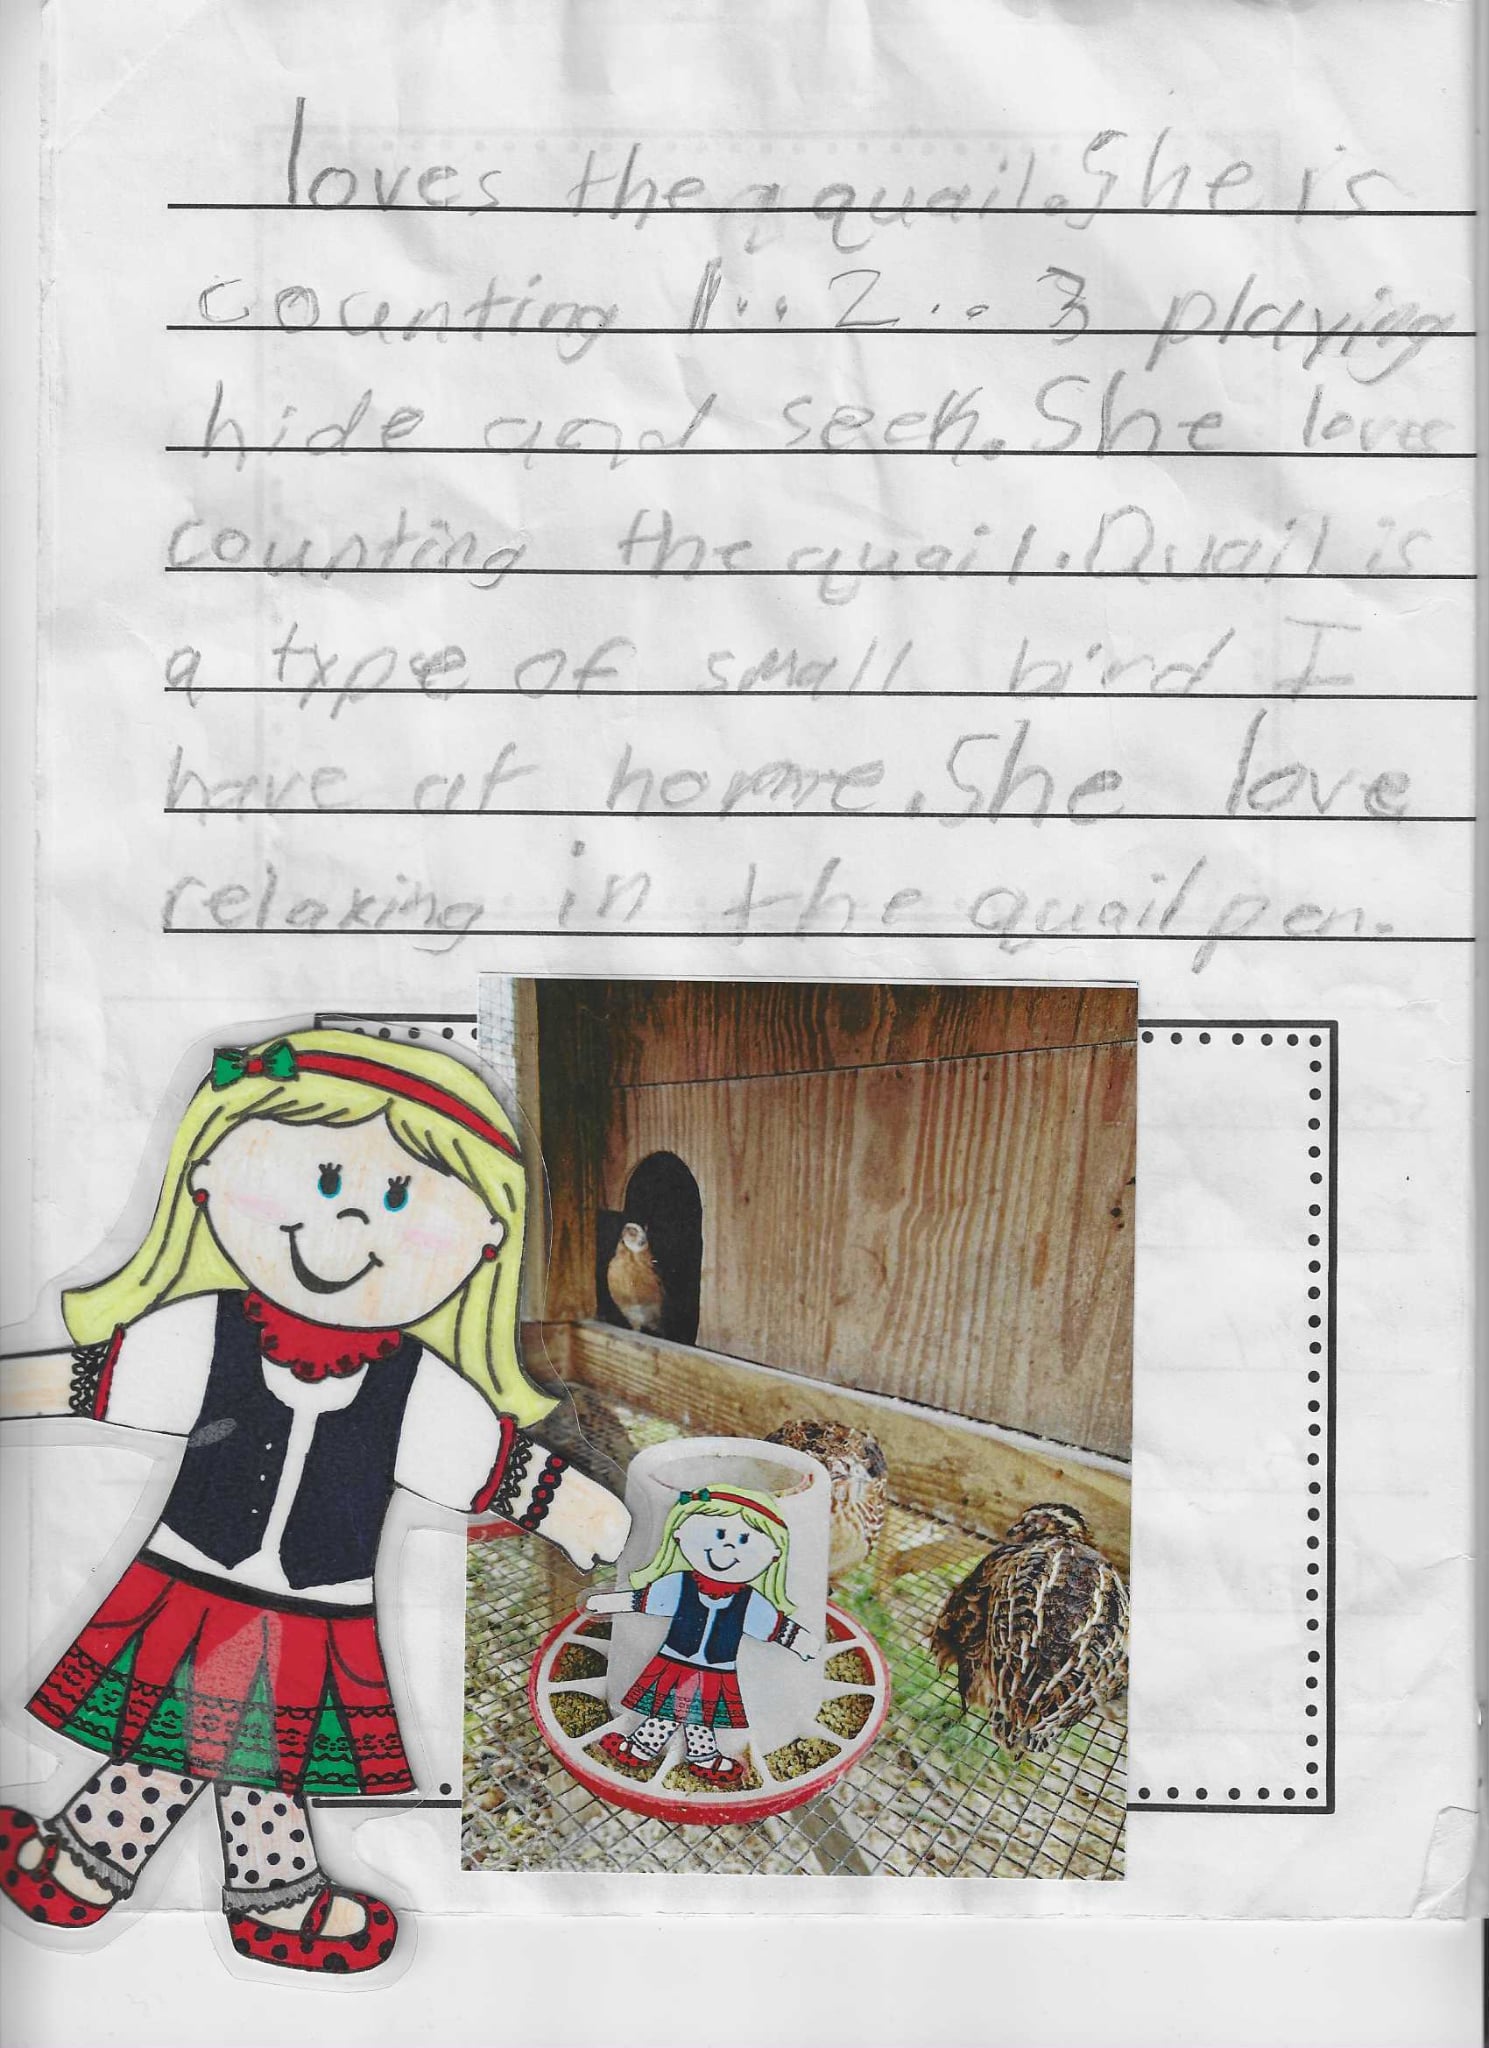 loves the q quail. She is
counting 1... 2... 3 playing
hide and seek. She loves
counting the quail. Quail is
a type of small bird I
have at home. She love
relaxing in the quail pen.